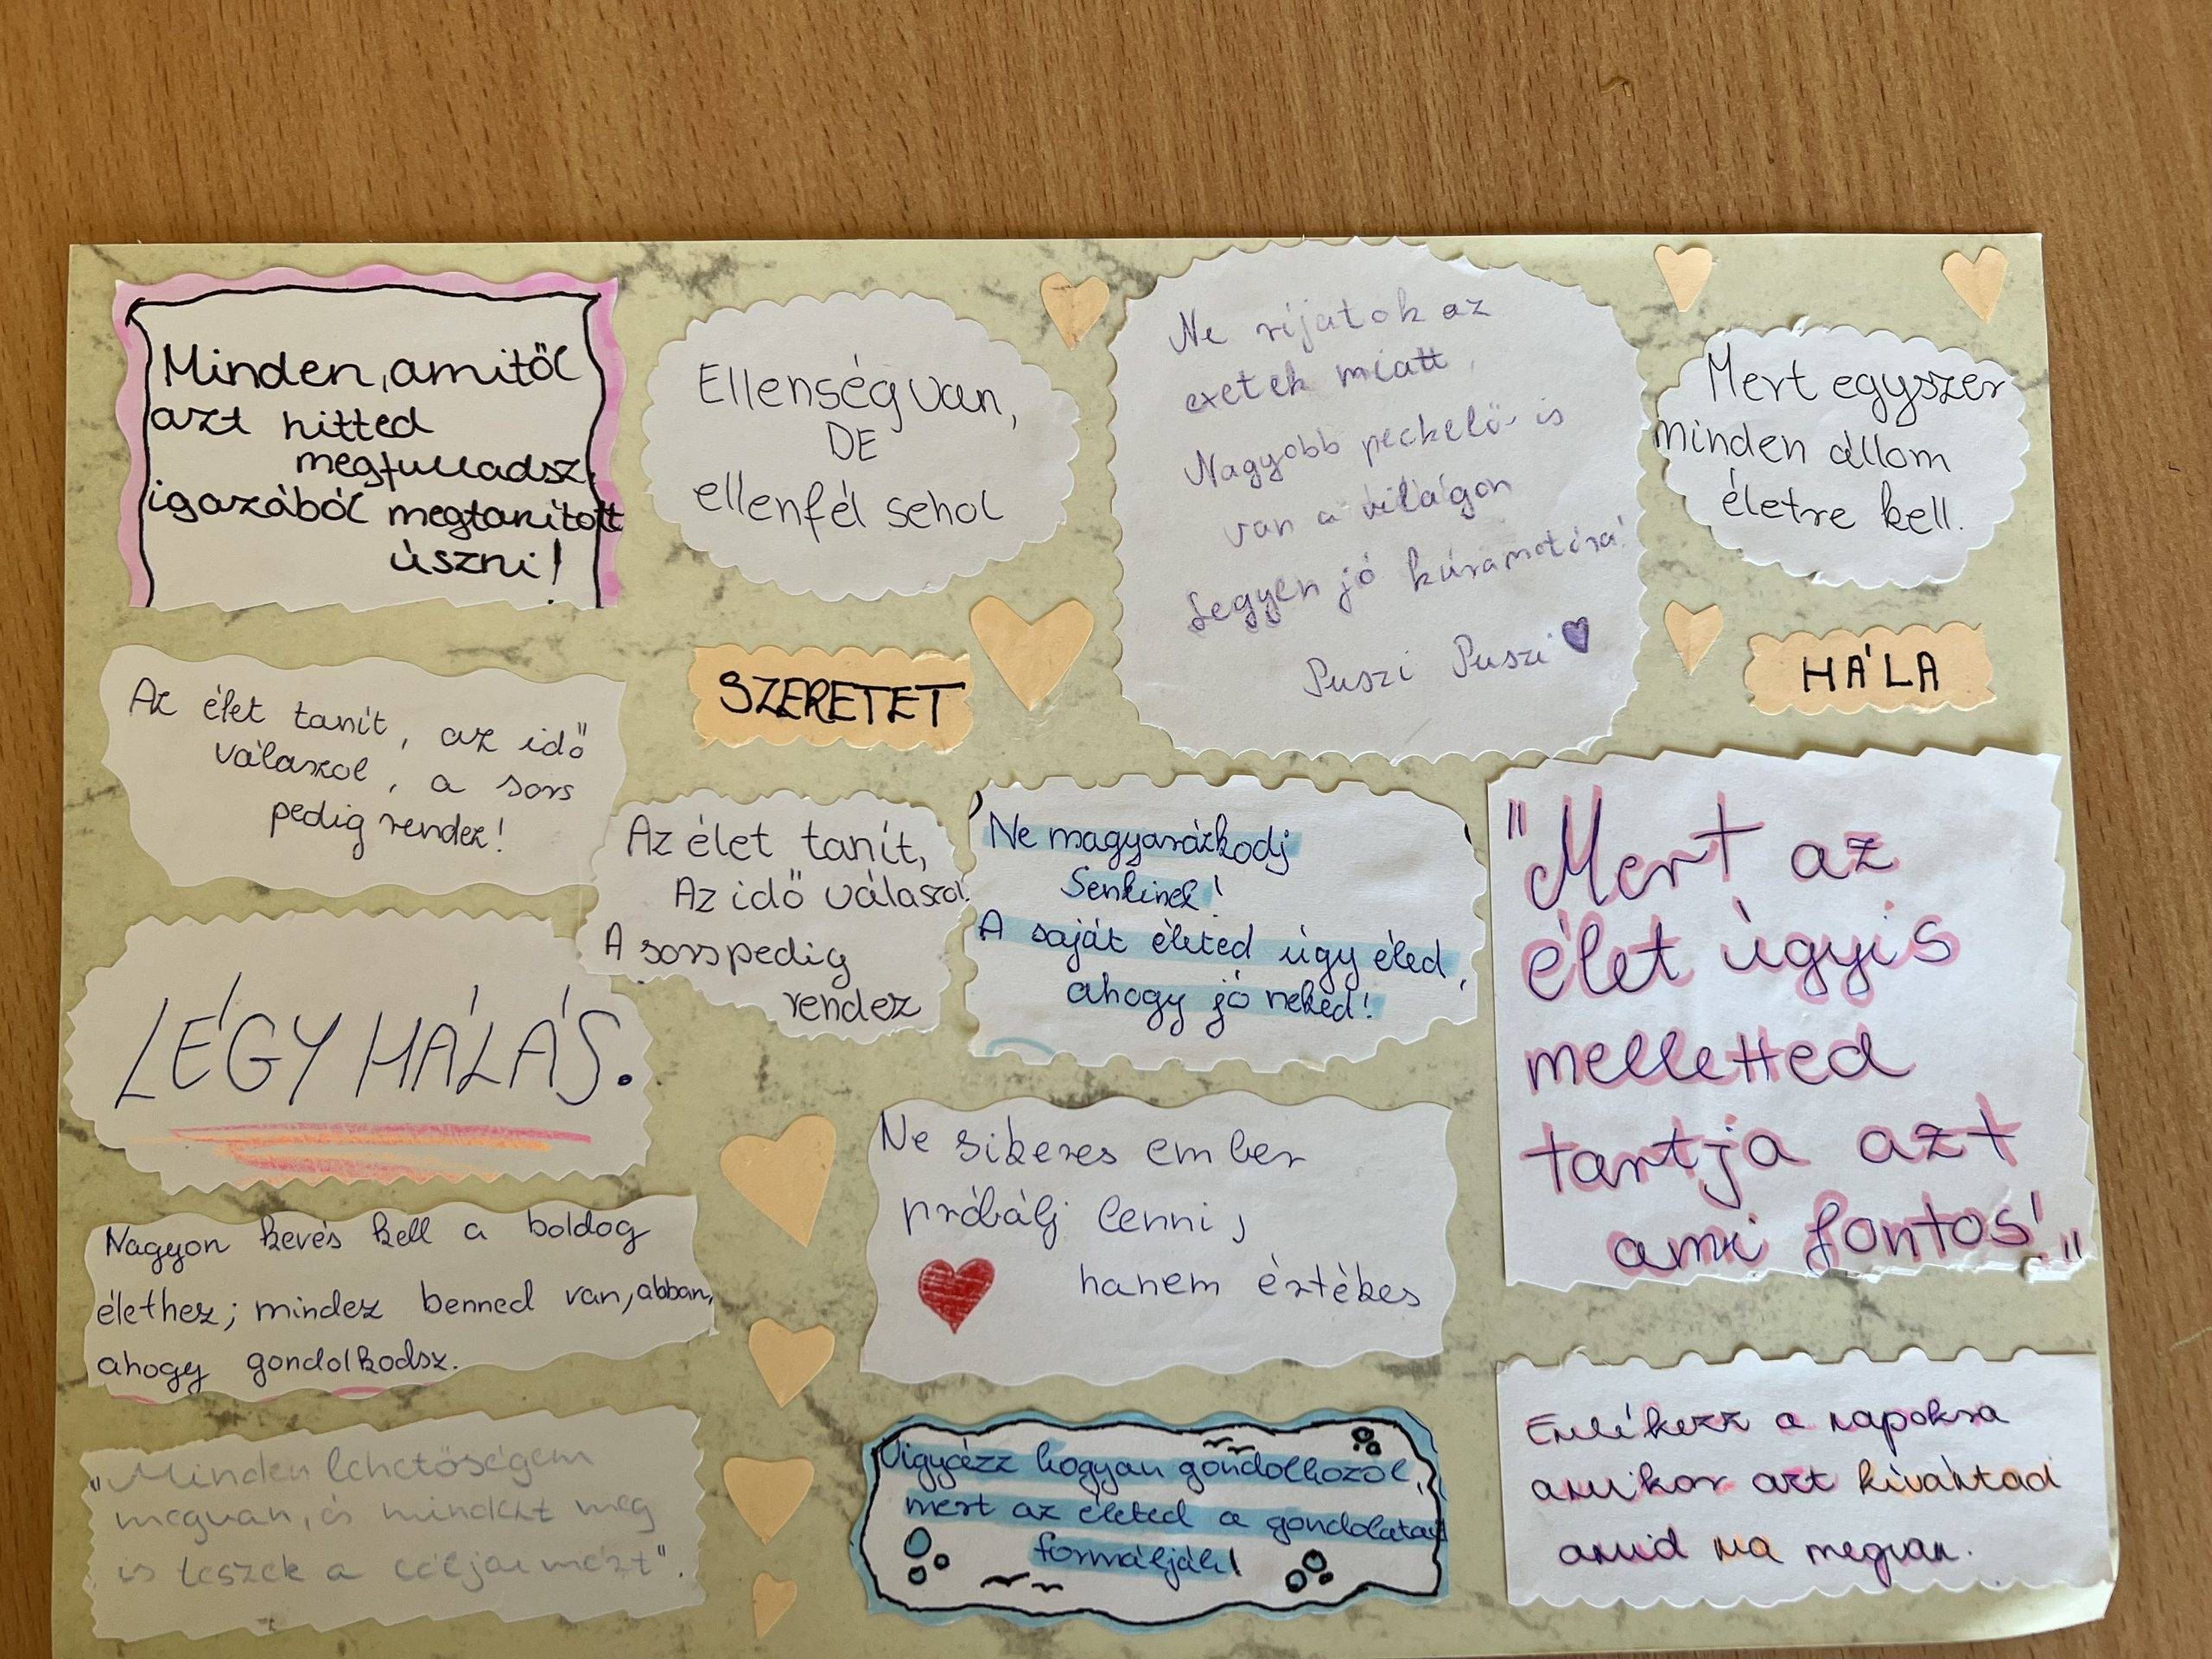 Minden, amitől
azt hitted
megfulladsz,
igazából megtanított
úszni!
Ellenség van,
DE
ellenfél sehol
Ne ríjatok az
exetek miatt,
Nagyobb peckelő is
van a világon
Legyen jó
Puszi Puszi
Mert egyszer
minden állom
életre kell.
HÁLA
SZERETET
Az élet tanít, az idő
válaszol, a sors
pedig rendez!
Az élet tanít,
Az idő válaszol.
A sors pedig
rendez
Ne magyarázkodj
Senkinek!
A saját életed úgy éled,
ahogy jó neked!
"Mert az
élet úgyis
melletted
tartja azt
ami fontos!"
LÉGY HÁLÁS.
Ne sikeres ember
próbálj lenni,
hanem értékes
Nagyon kevés kell a boldog
élethez; mindez benned van, abban,
ahogy gondolkodsz.
"Minden lehetőségem
megvan, és mindent meg
is teszek a céljaimért".
Vigyázz hogyan gondolkozol,
mert az életed a
formálják!
Emlékezz a napokra
amikor azt kívántad
amid ma megvan.